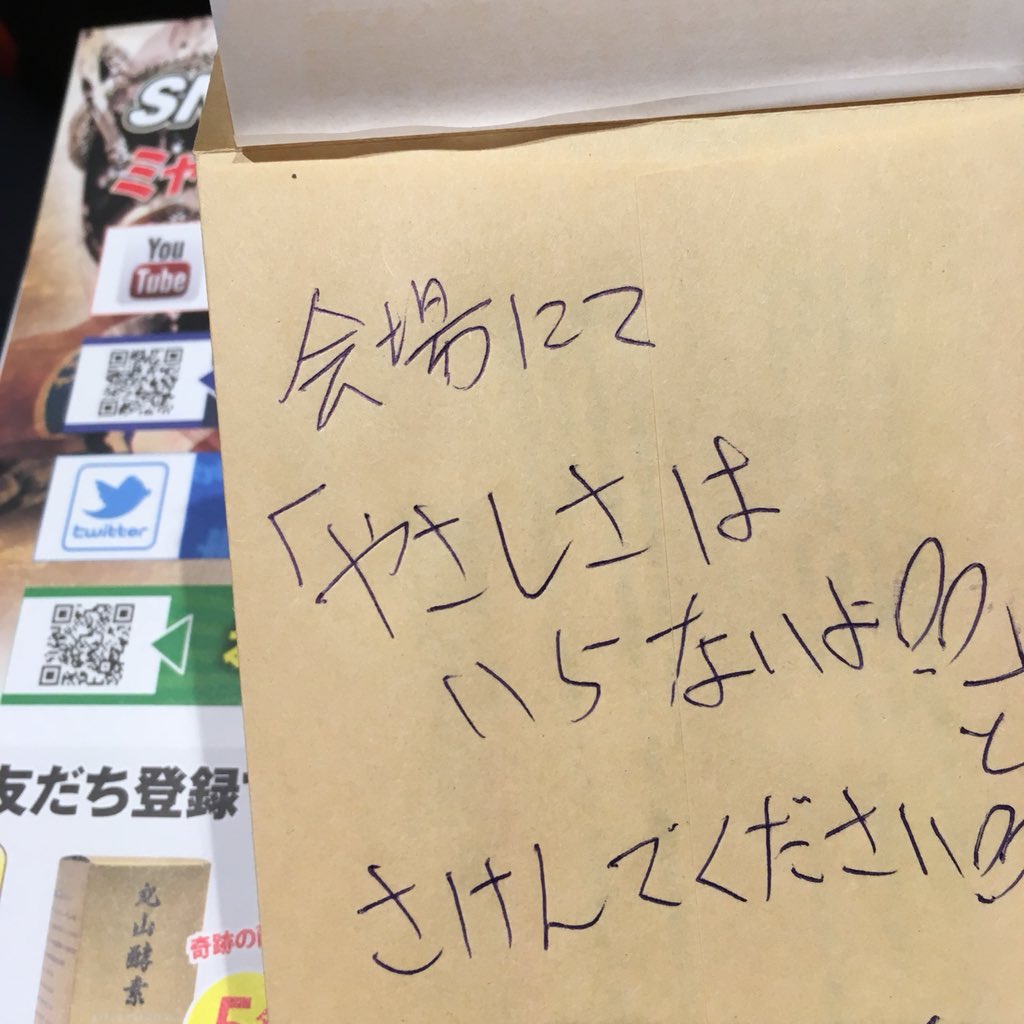 会場にて
「やさしさは
いらないよ!!」
と
さけんでください!!
You
Tube
twitter
友だち登録
丸山酵素
奇跡の